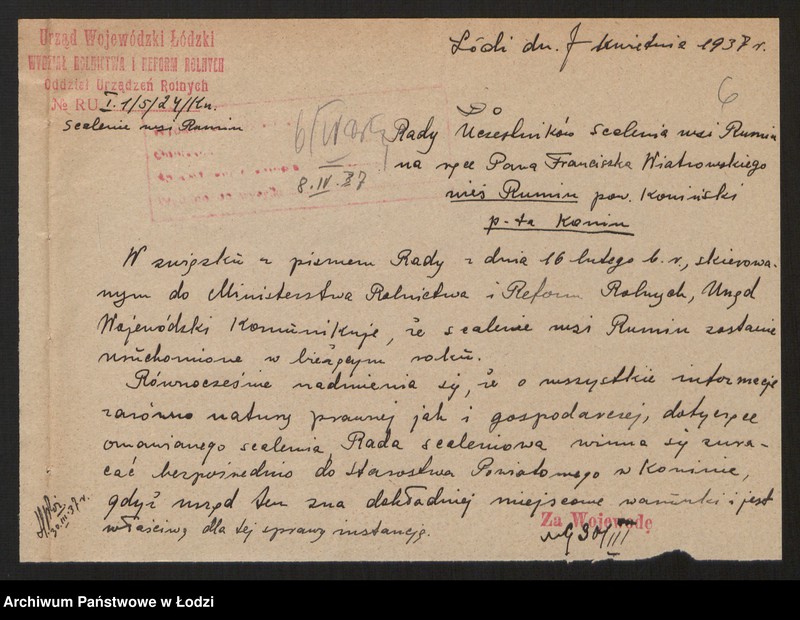 Urząd Wojewódzki Łódzki
WYDZIAŁ ROLNICTWA I REFORM ROLNYCH
Oddział Urządzeń Rolnych
№ RU. I. 1/5/24/Kn.
scalenie wsi Rumin
Łódź dn. 7 kwietnia 1937 r.
6
8.IV.37
Do
Rady Uczestników scalenia wsi Rumin
na ręce Pana Franciszka Wiatrowskiego
wieś Rumin pow. Koniński
p-ta Konin
W związku z pismem Rady z dnia 16 lutego b.r., skierowa-
nym do Ministerstwa Rolnictwa i Reform Rolnych, Urząd
Wojewódzki komunikuje, że scalenie wsi Rumin zostanie
uruchomione w bieżącym roku.
Równocześnie nadmienia się, że o wszystkie informacje
zarówno natury prawnej jak i gospodarczej, dotyczące
omawianego scalenia, Rada scaleniowa winna się zwra-
cać bezpośrednio do Starostwa Powiatowego w Koninie,
gdyż urząd ten zna dokładniej miejscowe warunki i jest
właściwą dla tej sprawy instancją.
30.III.37 r.
Za Wojewodę
30/III
Archiwum Państwowe w Łodzi